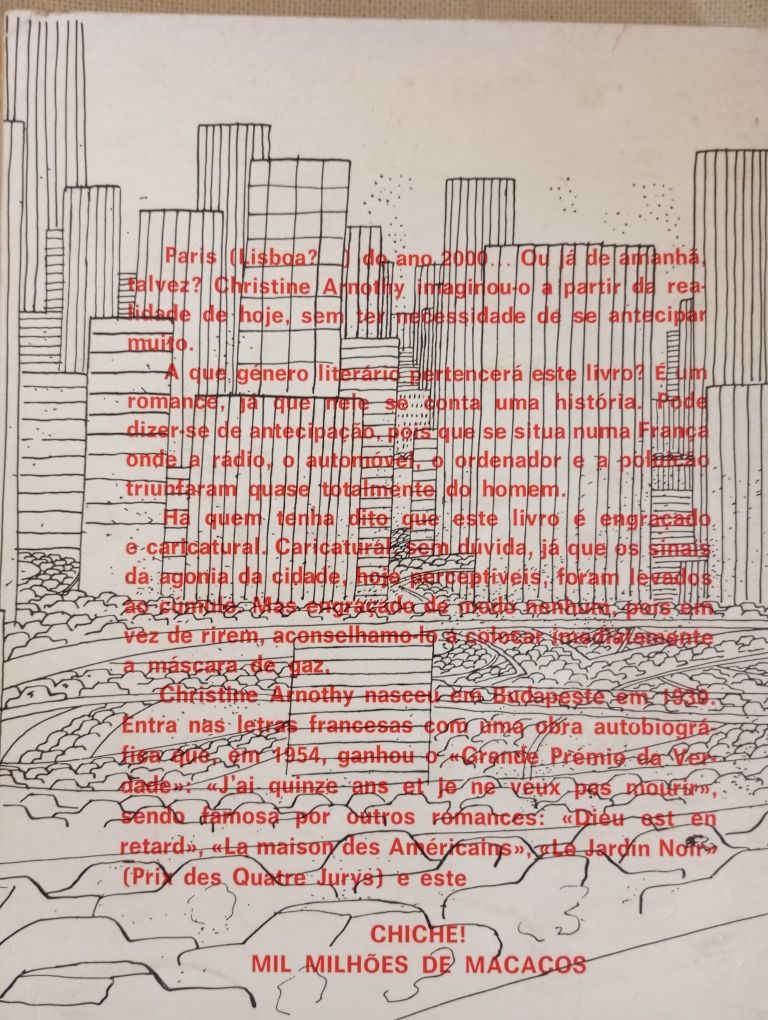 Paris (Lisboa? ...) do ano 2000... Ou já de amanhã,
talvez? Christine Arnothy imaginou-o a partir da rea-
lidade de hoje, sem ter necessidade de se antecipar
muito.
A que género literário pertencerá este livro? É um
romance, já que nele se conta uma história. Pode
dizer-se de antecipação, pois que se situa numa França
onde a rádio, o automóvel, o ordenador e a poluição
triunfaram quase totalmente do homem.
Há quem tenha dito que este livro é engraçado
e caricatural. Caricatural, sem dúvida, já que os sinais
da agonia da cidade, hoje perceptíveis, foram levados
ao cúmulo. Mas engraçado de modo nenhum, pois em
vez de rirem, aconselhamo-lo a colocar imediatamente
a máscara de gaz.
Christine Arnothy nasceu em Budapeste em 1930.
Entra nas letras francesas com uma obra autobiográ-
fica que, em 1954, ganhou o «Grande Prémio da Ver-
dade»: «J'ai quinze ans et je ne veux pas mourir»,
sendo famosa por outros romances: «Dieu est en
retard», «La maison des Américains», «Le Jardin Noir»
(Prix des Quatre Jurys) e este
CHICHE!
MIL MILHÕES DE MACACOS